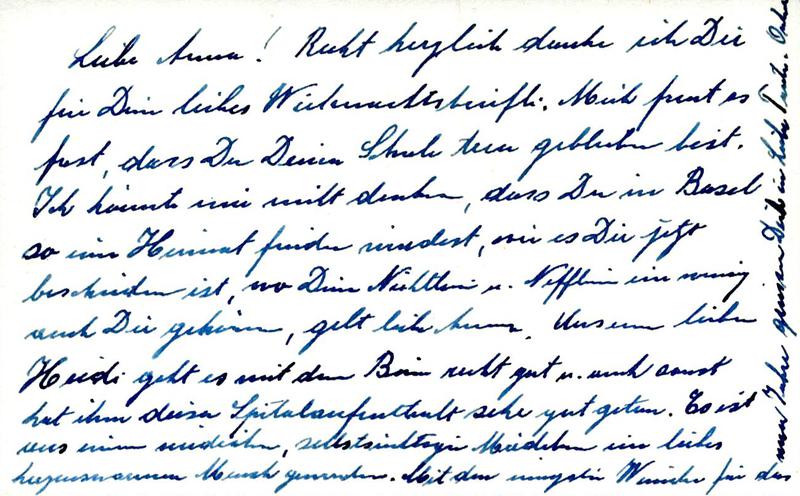 Liebe Anna! Recht herzlich danke ich Dir
für Dein liebes Weihnachtsbriefli. Mich freut es
fest, dass Du Deiner Schule treu geblieben bist.
Ich könnte mir nicht denken, dass Du in Basel
so eine Heimat finden würdest, wie es Dir jetzt
beschieden ist, wo Dein Nichtlein u. Nefflein ein wenig
auch Dir gehören, gelt liebe Anna. Unserem lieben
Heidi geht es mit dem Bein recht gut u. auch sonst
hat ihm dieser Spitalaufenthalt sehr gut getan. Es ist
aus einem, selbstsüchtigen Mädchen ein liebes
herzenswarmes Mensch geworden. Mit den innigsten Wünschen für das
neue Jahr grüssen Dich in Liebe